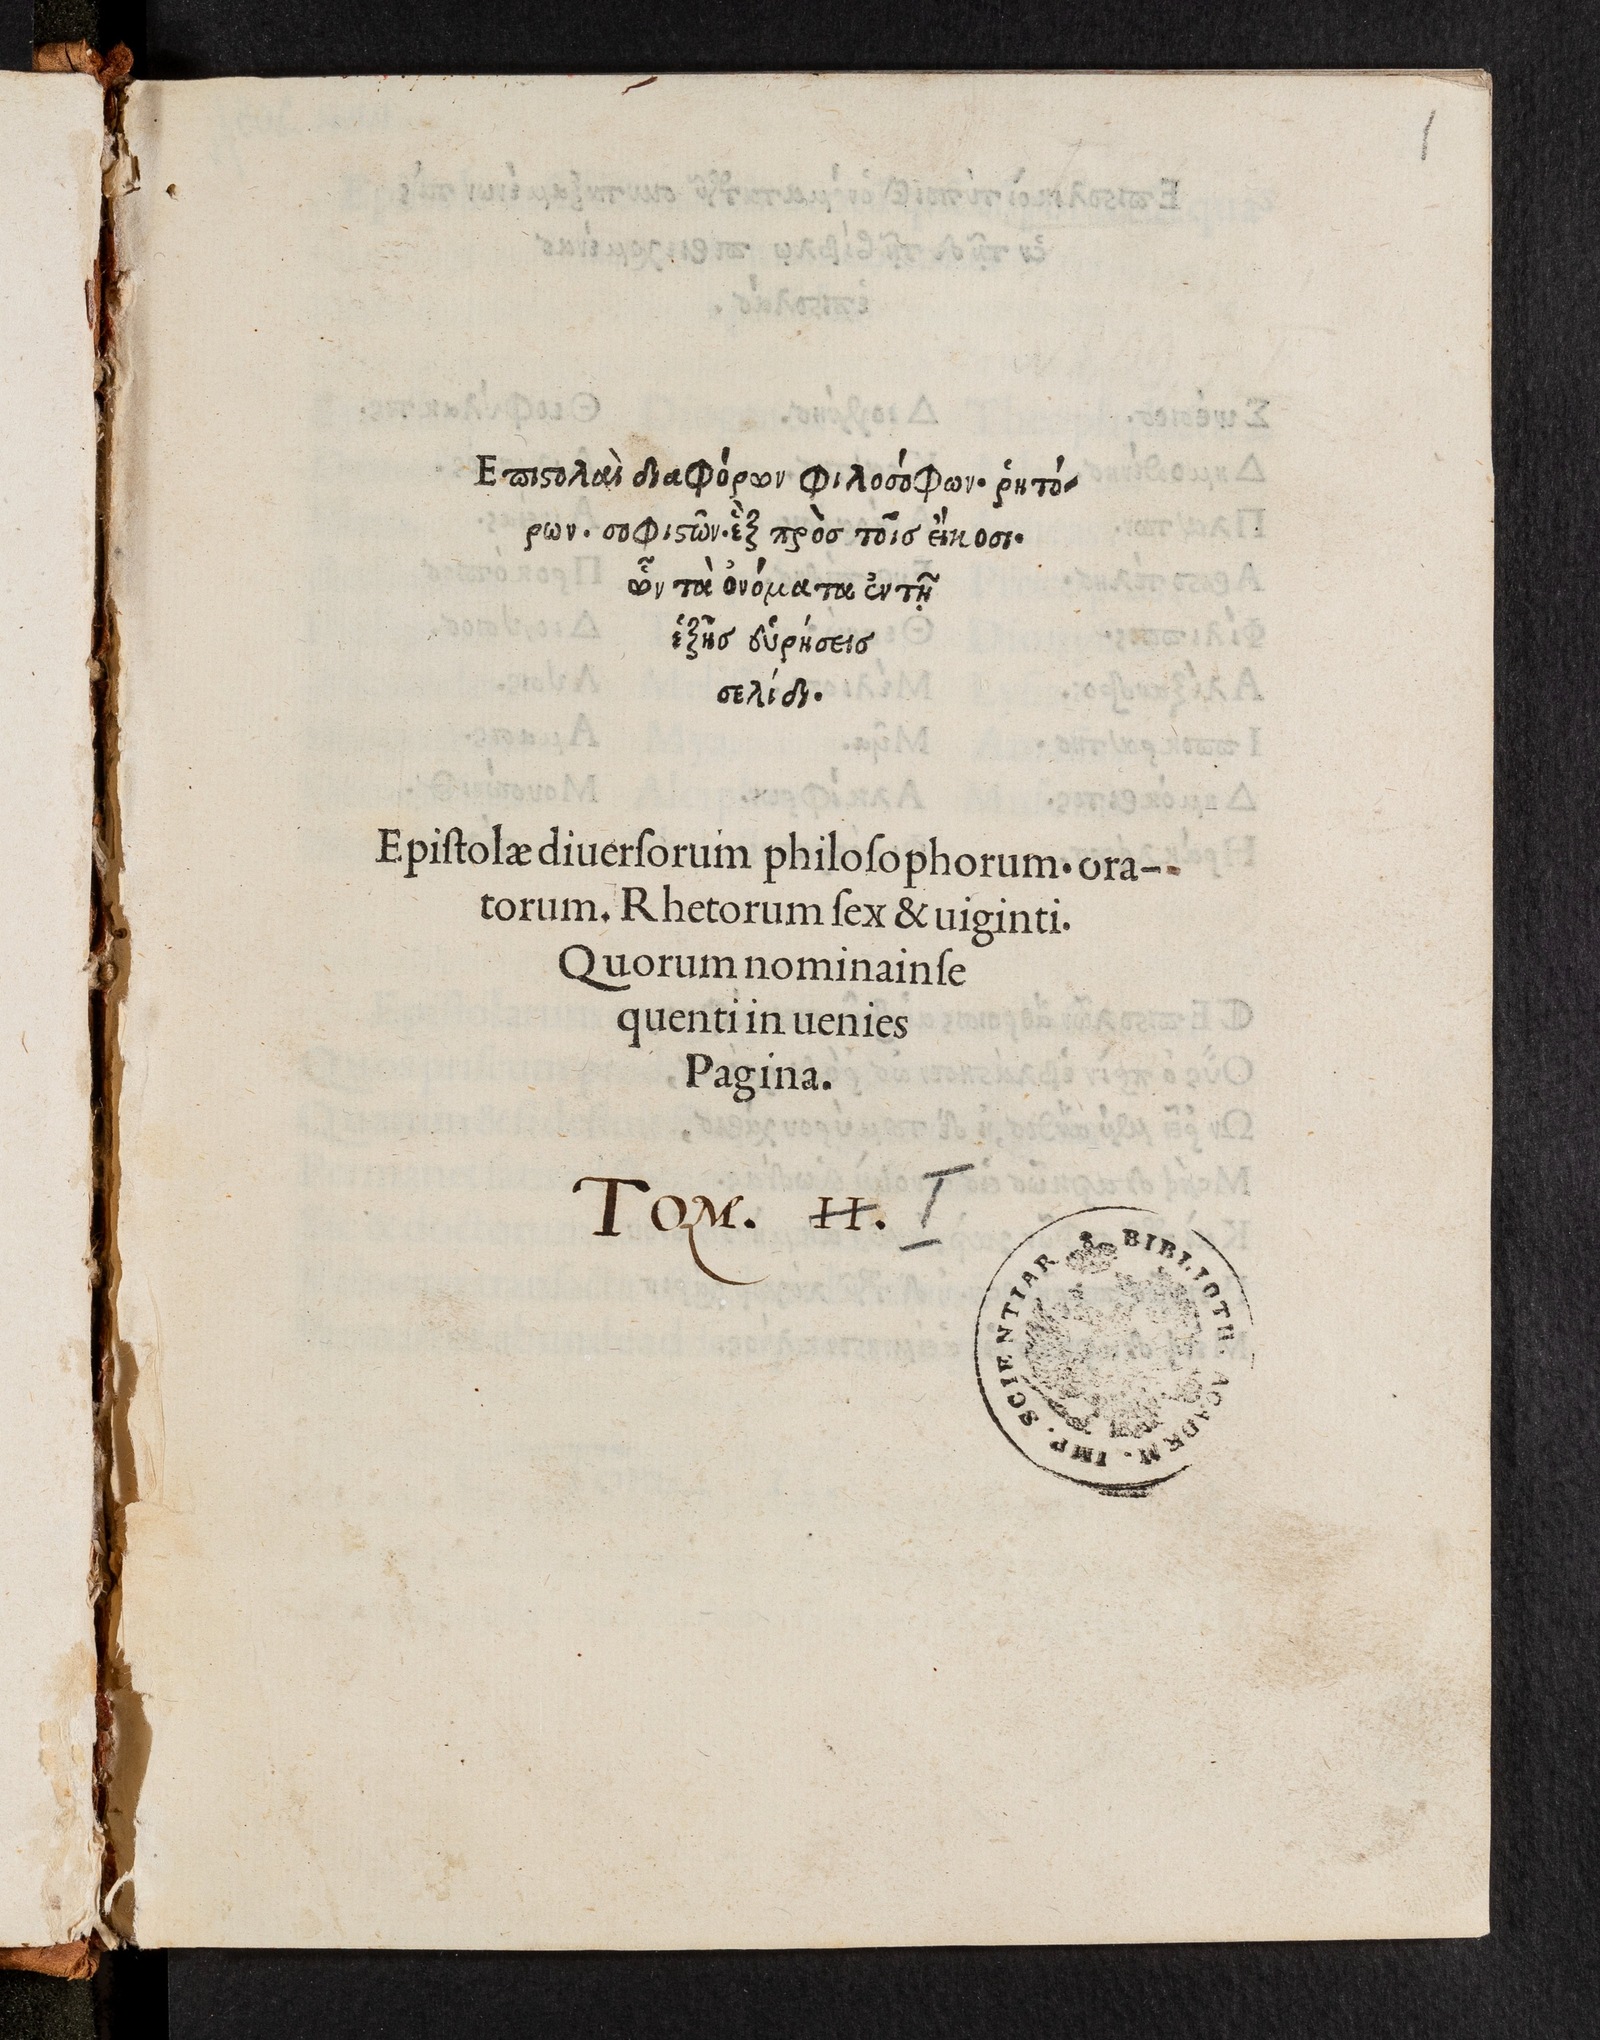 1
Επιστολαὶ διαφόρων φιλοσόφων· ῥητό-
ρων· σοφιστῶν· ἓξ πρὸς τοῖς εἴκοσι·
ὧν τὰ ὀνόματα ἐν τῇ
ἑξῆς εὑρήσεις
σελίδι·
Epiſtolæ diuerſorum philoſophorum. ora--
torum. Rhetorum ſex & uiginti.
Quorum nomina in ſe
quenti in uenies
Pagina.
TOM. II. I
BIBLIOTH. ACADEM. IMP. SCIENTIAR